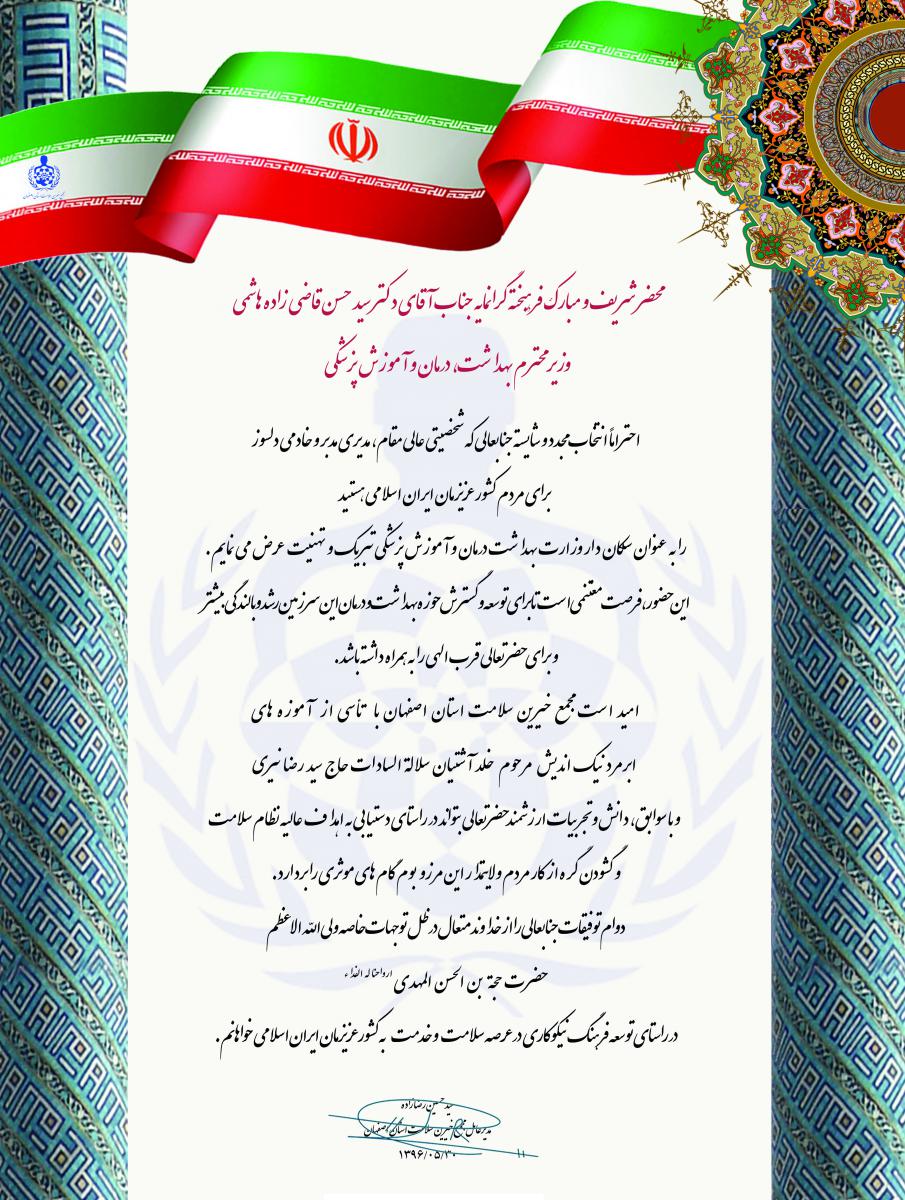 محضر شریف و مبارک فرهیخته گرانمایه جناب آقای دکتر سید حسن قاضی زاده هاشمی
وزیر محترم بهداشت، درمان و آموزش پزشکی
احتراماً انتخاب مجدد و شایسته جنابعالی که شخصیتی عالی مقام، مدیری مدبر و خادمی دلسوز
برای مردم کشور عزیزمان ایران اسلامی هستید
را به عنوان سکان دار وزارت بهداشت درمان و آموزش پزشکی تبریک و تهنیت عرض می نمایم .
این حضور، فرصت مغتنمی است تا برای توسعه و گسترش حوزه بهداشت و درمان این سرزمین رشد و بالندگی بیشتر
و برای حضرتعالی قرب الهی را به همراه داشته باشد.
امید است مجمع خیرین سلامت استان اصفهان با تأسی از آموزه های
ابرمرد نیک اندیش مرحوم خلد آشتیان سلالة السادات حاج سید رضا نیری
و با سوابق، دانش و تجربیات ارزشمند حضرتعالی بتواند در راستای دستیابی به اهداف عالیه نظام سلامت
و گشودن گره از کار مردم ولایتمدار این مرز و بوم گام های موثری را بردارد.
دوام توفیقات جنابعالی را از خداوند متعال در ظل توجهات خاصه ولی الله الاعظم
حضرت حجة بن الحسن المهدی ارواحنا له الفداء
در راستای توسعه فرهنگ نیکوکاری در عرصه سلامت و خدمت به کشور عزیزمان ایران اسلامی خواهانم .
سید حسین رضازاده
مدیرعامل مجمع خیرین سلامت استان اصفهان
۱۳۹۶/۰۵/۳۰